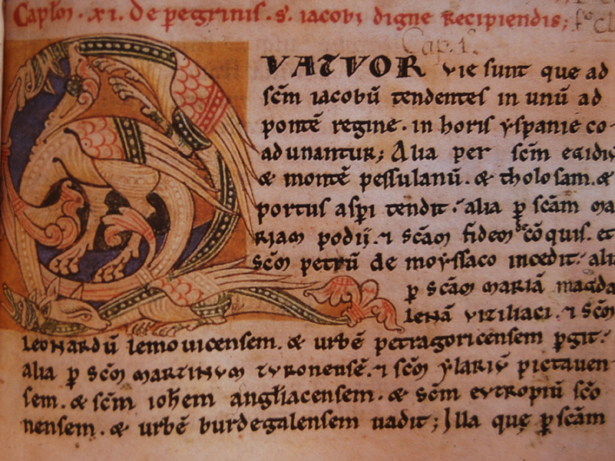 Caplm. xi. de pegrinis. s. iacobi digne Recipiendis;
Cap. 1.
QVATVOR vie sunt que ad
scm iacobū tendentes in unū ad
pontē regine. in horis yspanie co-
adunantur; Alia per scm egidiū
& montē pessulanū. & tholosam. &
portus aspi tendit. alia p scam ma
Riam podii. & scam fidem de cōquis. et
scm petrū de moyssaco incedit. alia
p scam mariā magda
lenā viziliaci. & scm
leonardū lemovicensem. & urbē petragoricensem pgit.
alia p scm martinum turonensē. & scm ylariū pictaven
sem. & scm iohem angliacensem. & scm eutropiū sco
nensem. & urbē burdegalensem uadit; Illa que p scam